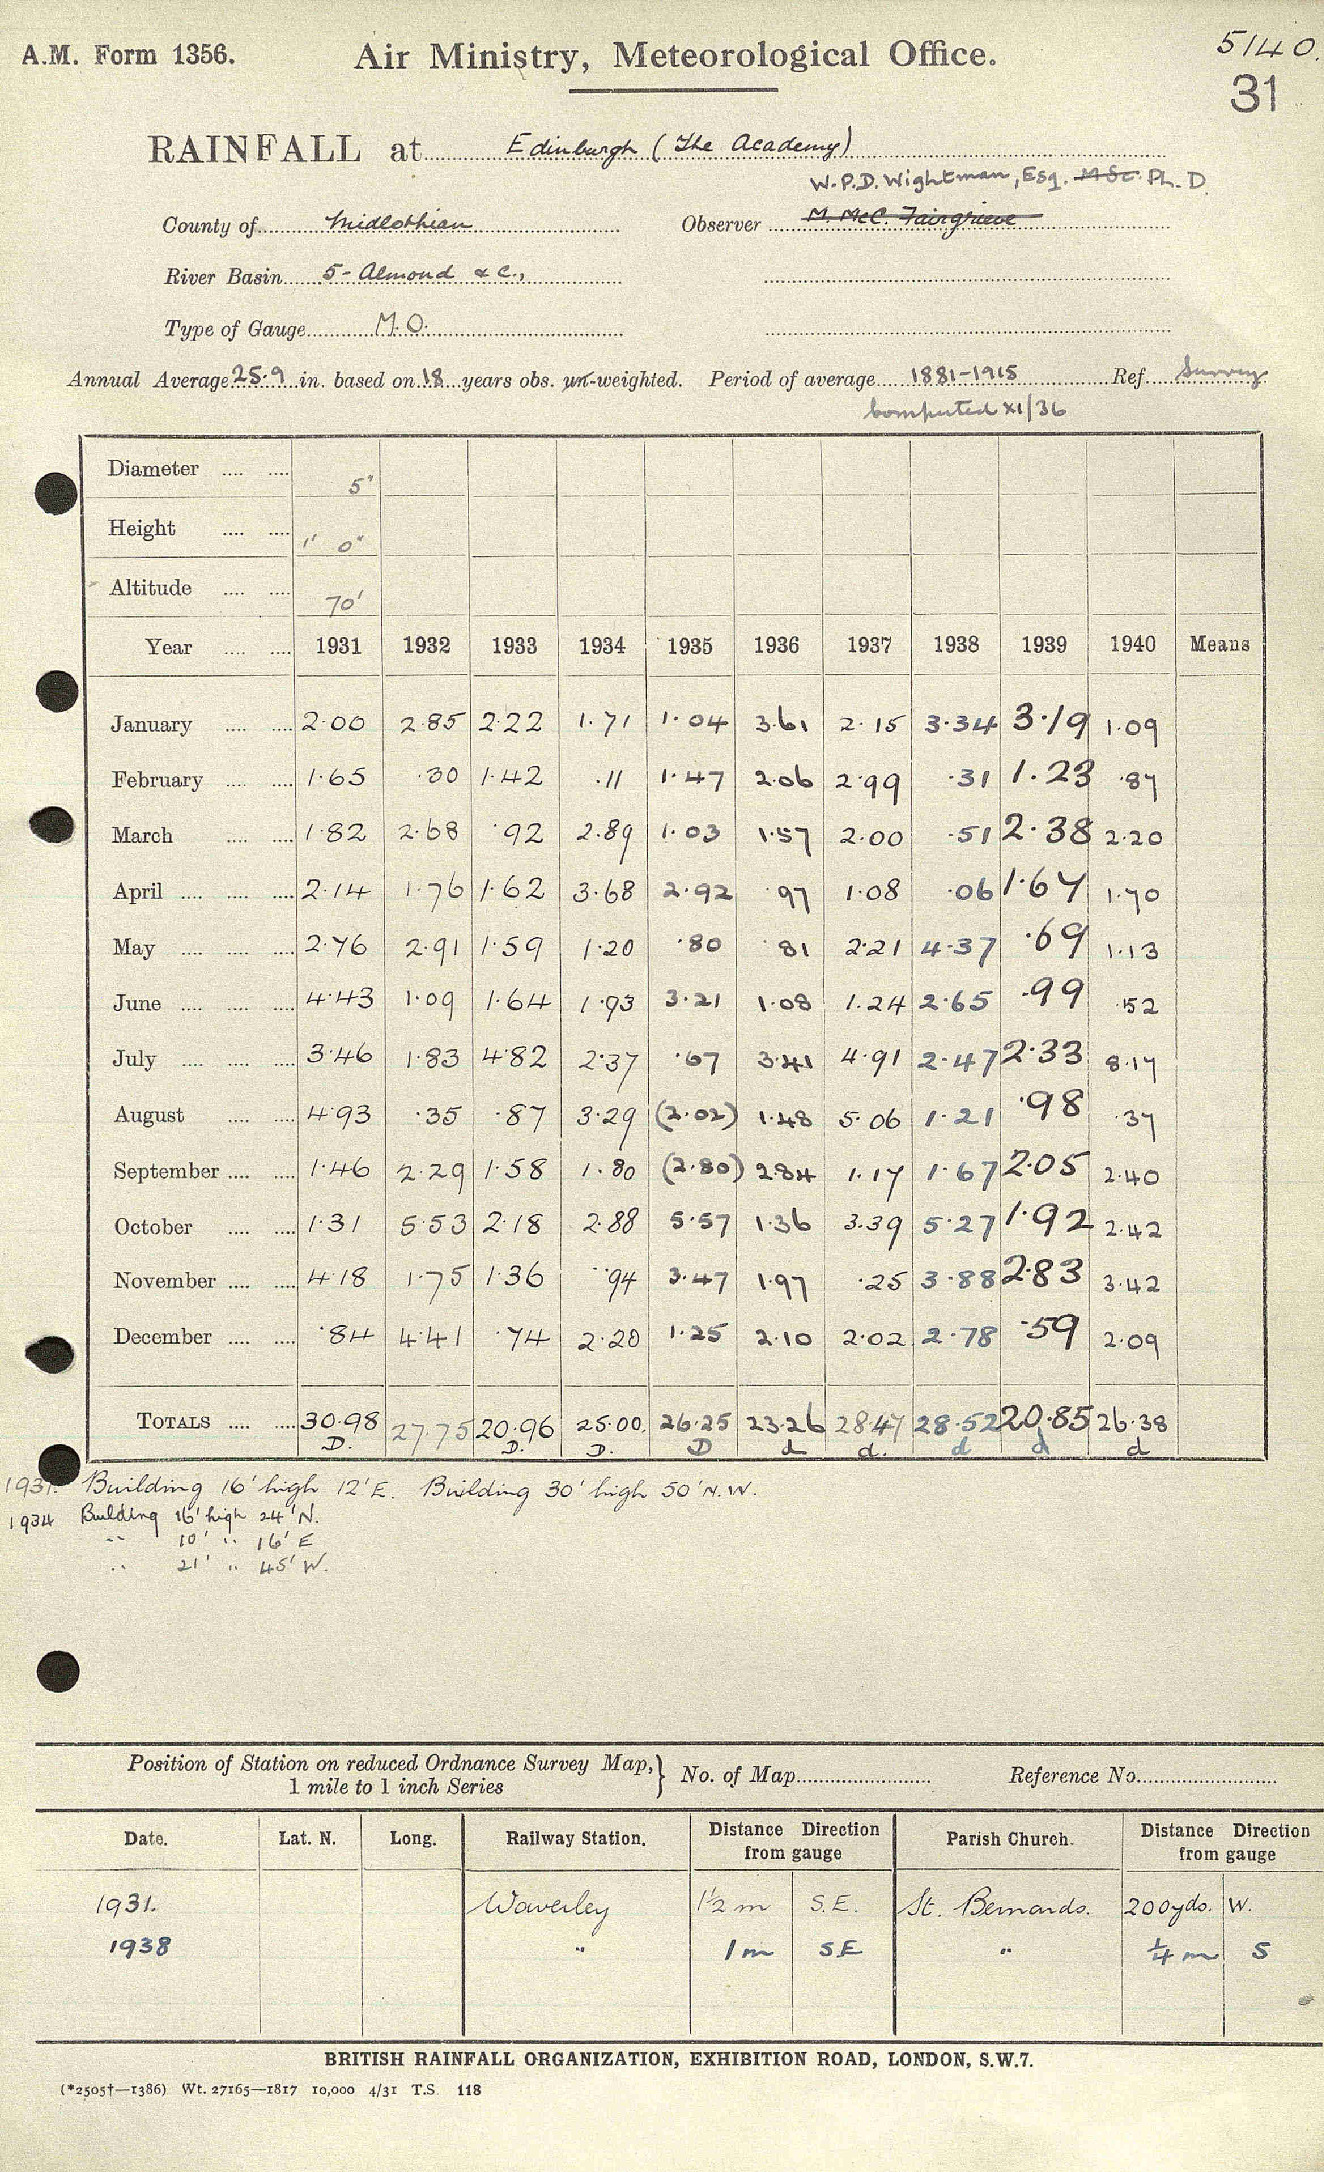 A.M. Form 1356.
Air Ministry, Meteorological Office.
5140.
31
RAINFALL at Edinburgh (The Academy)
W.P.D. Wightman, Esq. M.Sc. Ph.D
County of Midlothian Observer M. McC. Fairgrieve
River Basin 5- Almond &c.,
Type of Gauge M.O.
Annual Average 25.9 in. based on 18 years obs. un-weighted. Period of average 1881-1915 Ref. Survey
Computed XI/36
Diameter 5"
Height 1' 0"
Altitude 70'
Year 1931 1932 1933 1934 1935 1936 1937 1938 1939 1940 Means
January 2.00 2.85 2.22 1.71 1.04 3.61 2.15 3.34 3.19 1.09
February 1.65 .30 1.42 .11 1.47 2.06 2.99 .31 1.23 .87
March 1.82 2.68 .92 2.89 1.03 1.57 2.00 .51 2.38 2.20
April 2.14 1.76 1.62 3.68 2.92 .97 1.08 .06 1.67 1.70
May 2.76 2.91 1.59 1.20 .80 .81 2.21 4.37 .69 1.13
June 4.43 1.09 1.64 1.93 3.21 1.08 1.24 2.65 .99 .52
July 3.46 1.83 4.82 2.37 .67 3.41 4.91 2.47 2.33 8.17
August 4.93 .35 .87 3.29 (2.02) 1.48 5.06 1.21 .98 .37
September 1.46 2.29 1.58 1.80 (2.80) 2.84 1.17 1.67 2.05 2.40
October 1.31 5.53 2.18 2.88 5.57 1.36 3.39 5.27 1.92 2.42
November 4.18 1.75 1.36 .94 3.47 1.97 .25 3.88 2.83 3.42
December .84 4.41 .74 2.20 1.25 2.10 2.02 2.78 .59 2.09
TOTALS 30.98 27.75 20.96 25.00 26.25 23.26 28.47 28.52 20.85 26.38
D. D. D. D d d. d d d
1931. Building 16' high 12' E. Building 30' high 50' N.W.
1934 Building 16' high 24' N.
" 10' " 16' E
" 21' " 45' W.
Position of Station on reduced Ordnance Survey Map, } No. of Map Reference No.
1 mile to 1 inch Series
Date. Lat. N. Long. Railway Station. Distance Direction from gauge Parish Church. Distance Direction from gauge
1931. Waverley 1½ m S.E. St. Bernards. 200yds. W.
1938 " 1 m SE " ¼ m S
BRITISH RAINFALL ORGANIZATION, EXHIBITION ROAD, LONDON, S.W.7.
(*2505†—1386) Wt. 27165—1817 10,000 4/31 T.S. 118